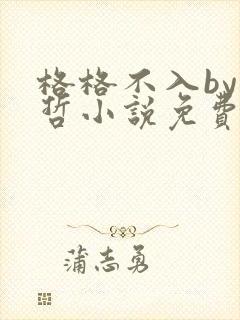 格格不入by
哲小說免費
蒲志勇